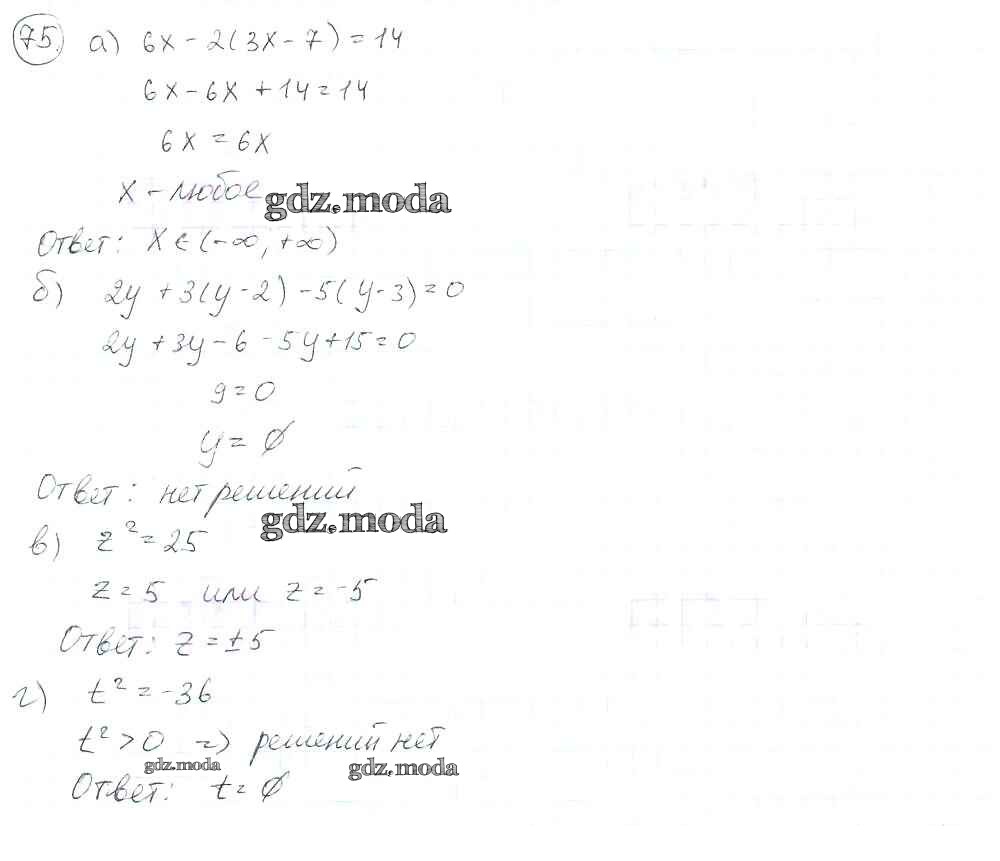 75. а) 6x - 2(3x - 7) = 14
6x - 6x + 14 = 14
6x = 6x
x - любое
gdz.moda
Ответ: x ∈ (-∞, +∞)
б) 2y + 3(y - 2) - 5(y - 3) = 0
2y + 3y - 6 - 5y + 15 = 0
9 = 0
y = ∅
Ответ: нет решений
gdz.moda
в) z² = 25
z = 5 или z = -5
Ответ: z = ±5
г) t² = -36
t² > 0 => решений нет
gdz.moda gdz.moda
Ответ: t = ∅